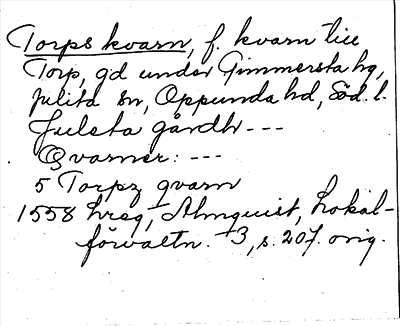 Torps kvarn, f. kvarn till
Torp, gd under Gimmersta hg,
Julita sn, Oppunda hd, Söd. l.
Julsta gårdh ---
Qvarner: ---
5 Torpz qvarn
1558 hreg, Almquist, Lokal-
förvaltn. 3, s. 207. orig.